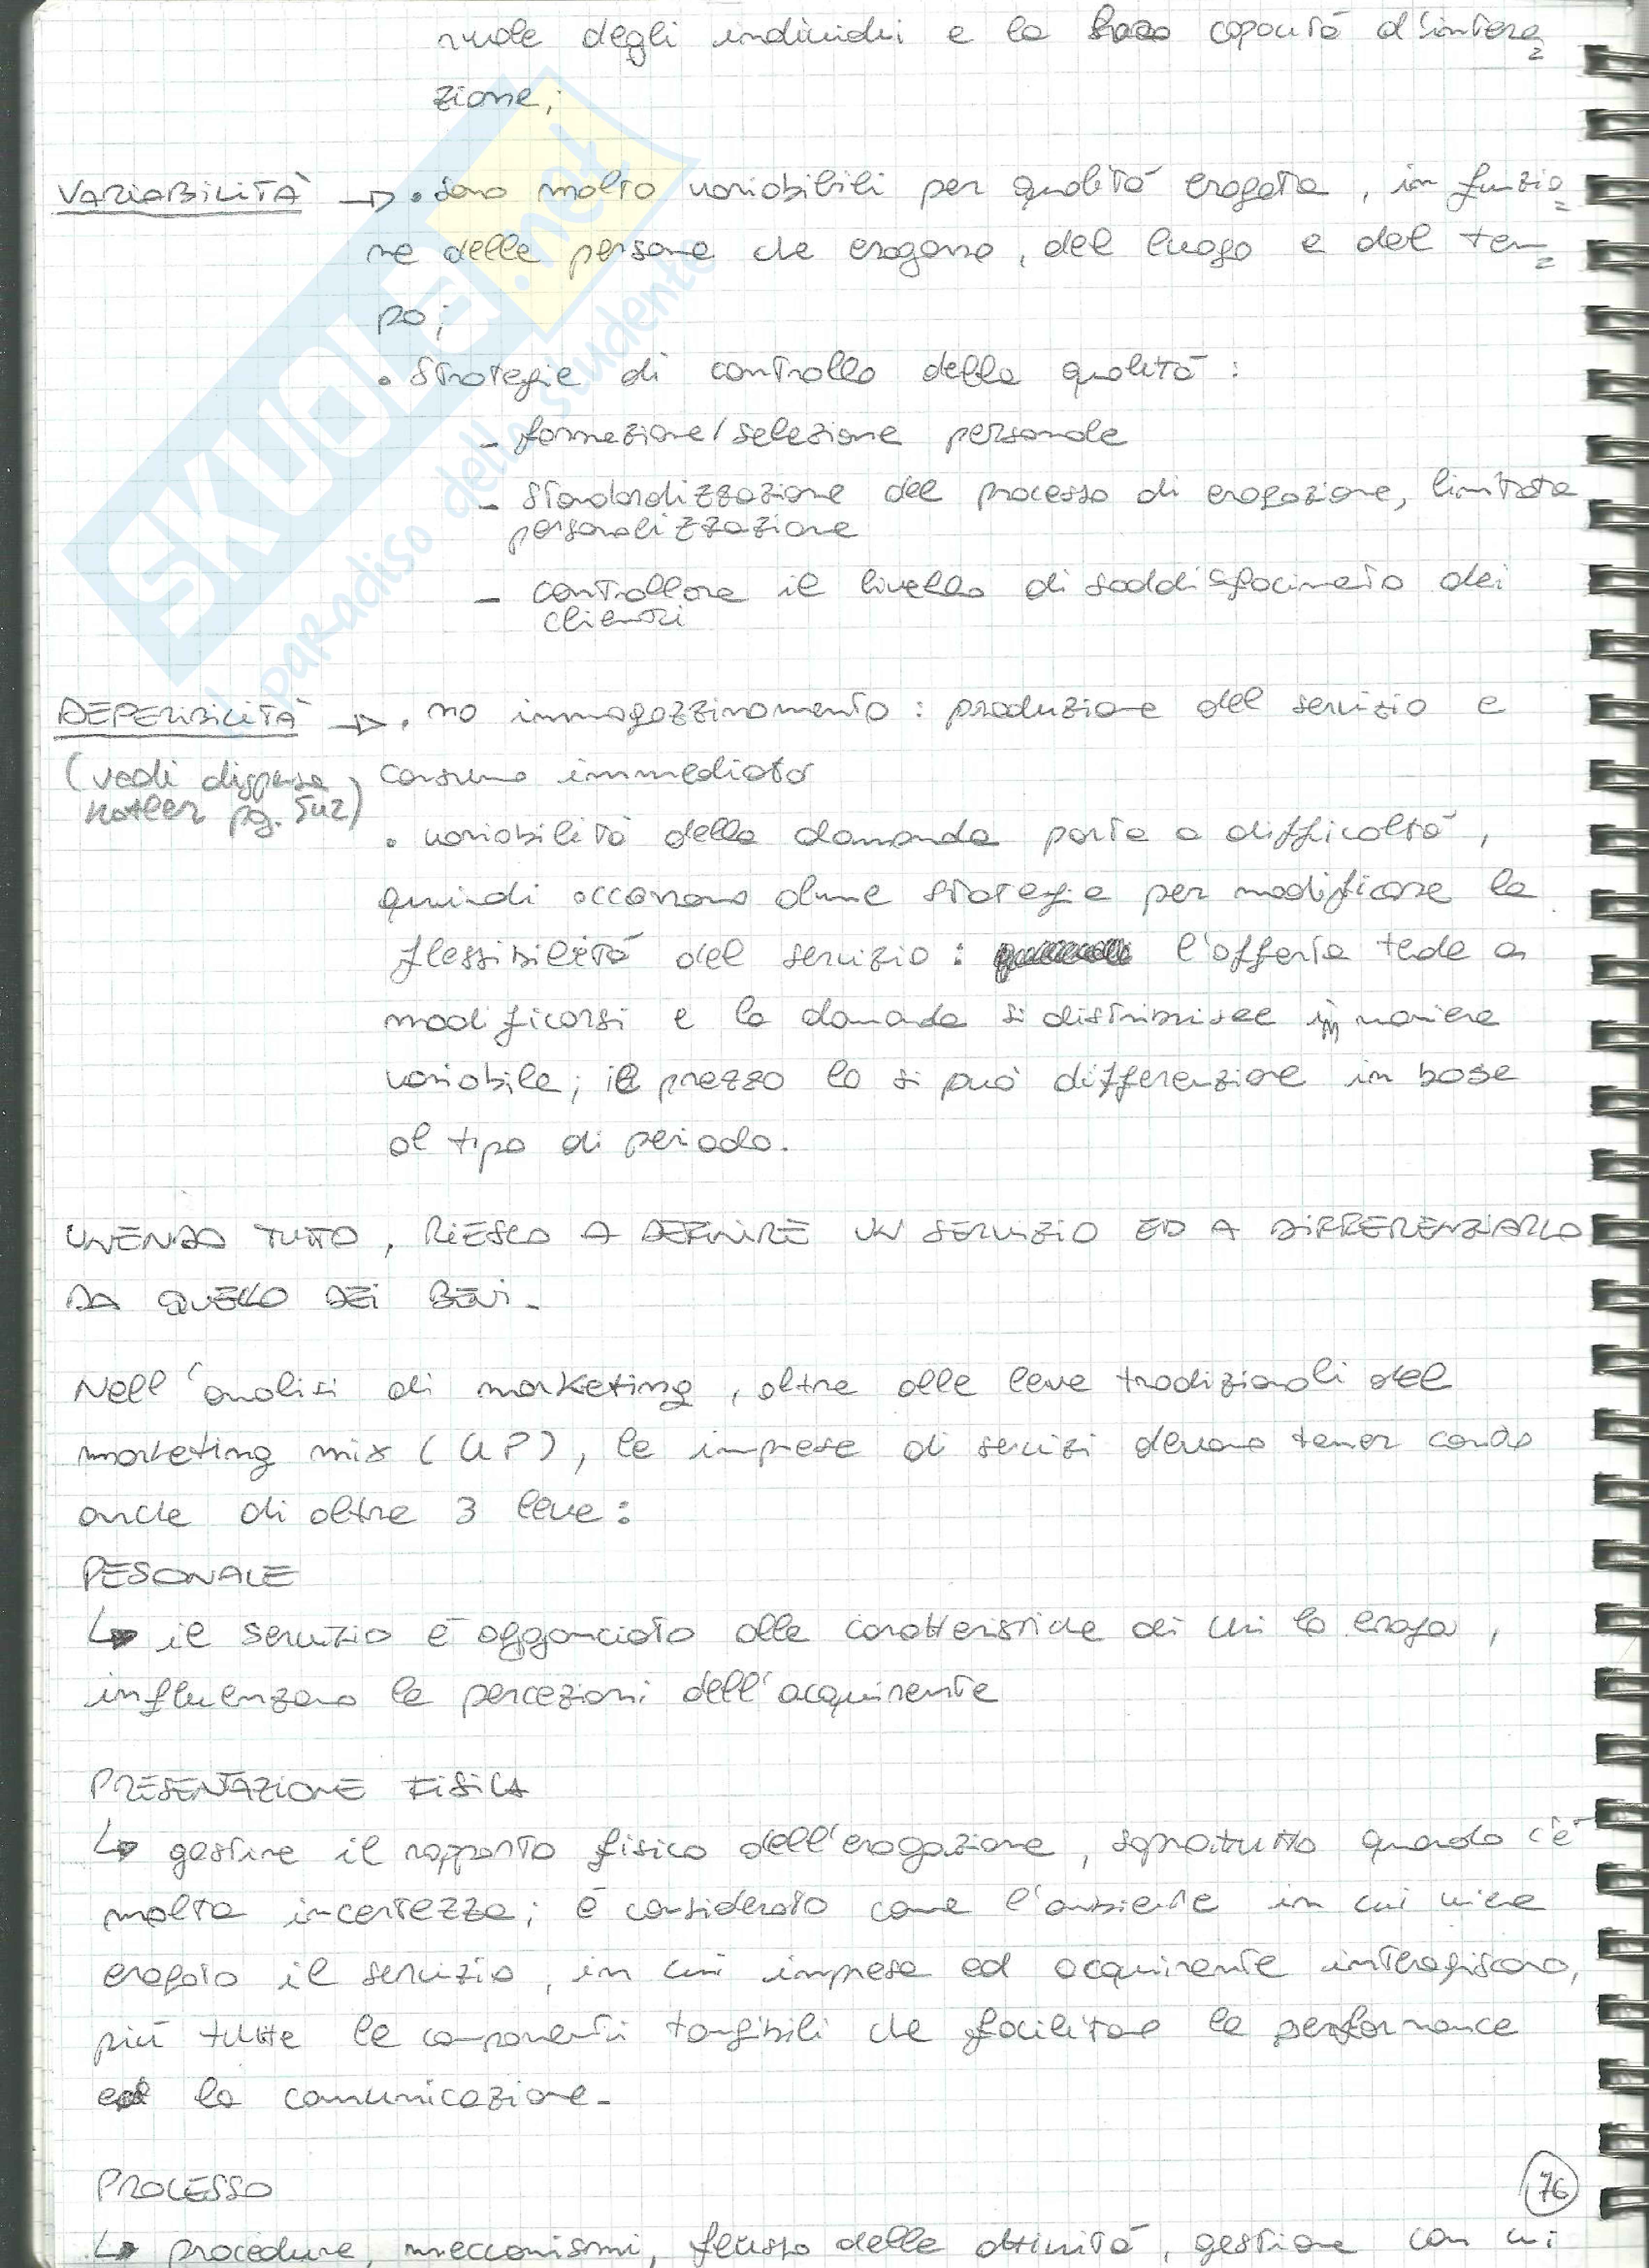 ruolo degli individui e la loro capacità d'intera=
zione;
VARIABILITÀ → • sono molto variabili per qualità erogata, in funzio=
ne delle persone che erogano, del luogo e del tem=
po;
• Strategie di controllo della qualità:
- formazione/selezione personale
- standardizzazione del processo di erogazione, limitata
personalizzazione
- controllare il livello di soddisfacimento dei
clienti
DEPERIBILITÀ → • no immagazzinamento: produzione del servizio e
(vedi dispensa
consumo immediato
Kotler pg. 542)
• variabilità della domanda porta a difficoltà,
quindi occorrono alcune strategie per modificare la
flessibilità del servizio: l'offerta tede a
modificarsi e la domanda si distribuisce in maniera
variabile; il prezzo lo si può differenziare in base
al tipo di periodo.
UNENDO TUTTO, RIESCO A DEFINIRE UN SERVIZIO ED A DIFFERENZIARLO
DA QUELLO DEI BENI.
Nell'analisi di marketing, oltre alle leve tradizionali del
marketing mix (4P), le imprese di servizi devono tener conto
anche di altre 3 leve:
PESONALE
↳ il servizio è agganciato alle caratteristiche di chi lo eroga,
influenzano le percezioni dell'acquirente
PRESENTAZIONE FISICA
↳ gestire il rapporto fisico dell'erogazione, soprattutto quando c'è
molta incertezza; è considerato come l'ambiente in cui viene
erogato il servizio, in cui impresa ed acquirente interagiscono,
più tutte le componenti tangibili che facilitano la performance
ed la comunicazione.
PROCESSO
↳ procedure, meccanismi, flusso delle attività, gestione con cui
76
SKUOLA.net
il paradiso dello studente